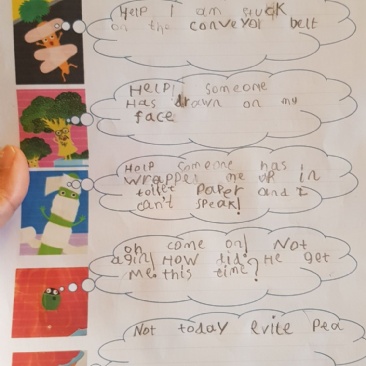 Help I am stuck
on the conveyor belt
HELP! someone
Has drawn on my
face
Help someone has
wrapped me up in
toilet paper and I
can't speak!
oh come on! Not
agin! How did he get
me this time?
Not today Evite Pea